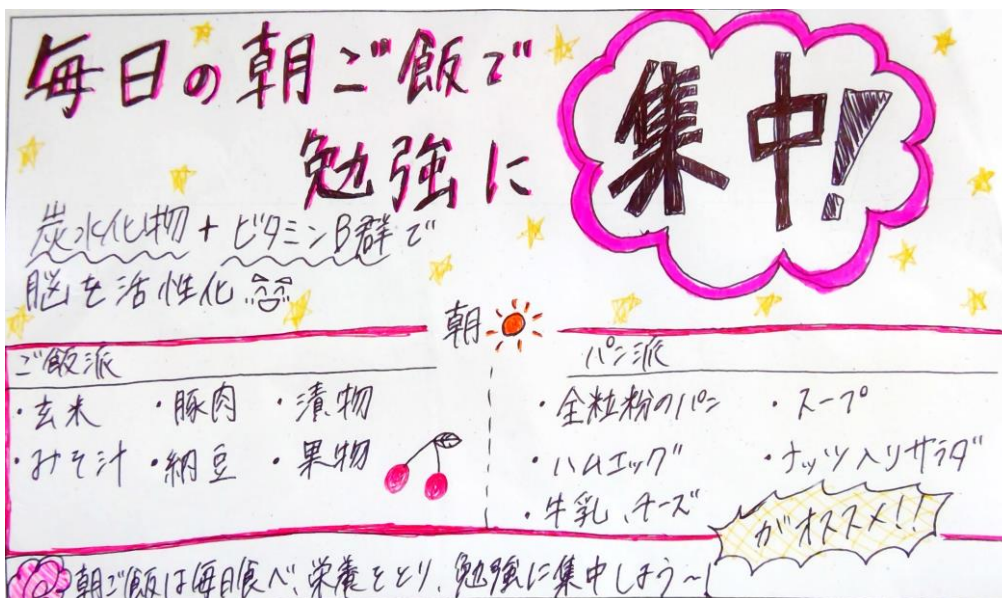 毎日の朝ご飯で
勉強に
集中!
炭水化物+ビタミンB群で
脳を活性化
朝
ご飯派
・玄米 ・豚肉 ・漬物
・みそ汁 ・納豆 ・果物
パン派
・全粒粉のパン ・スープ
・ハムエッグ ・ナッツ入りサラダ
・牛乳、チーズ
がオススメ!!
朝ご飯は毎日食べ、栄養をとり、勉強に集中しよう~!